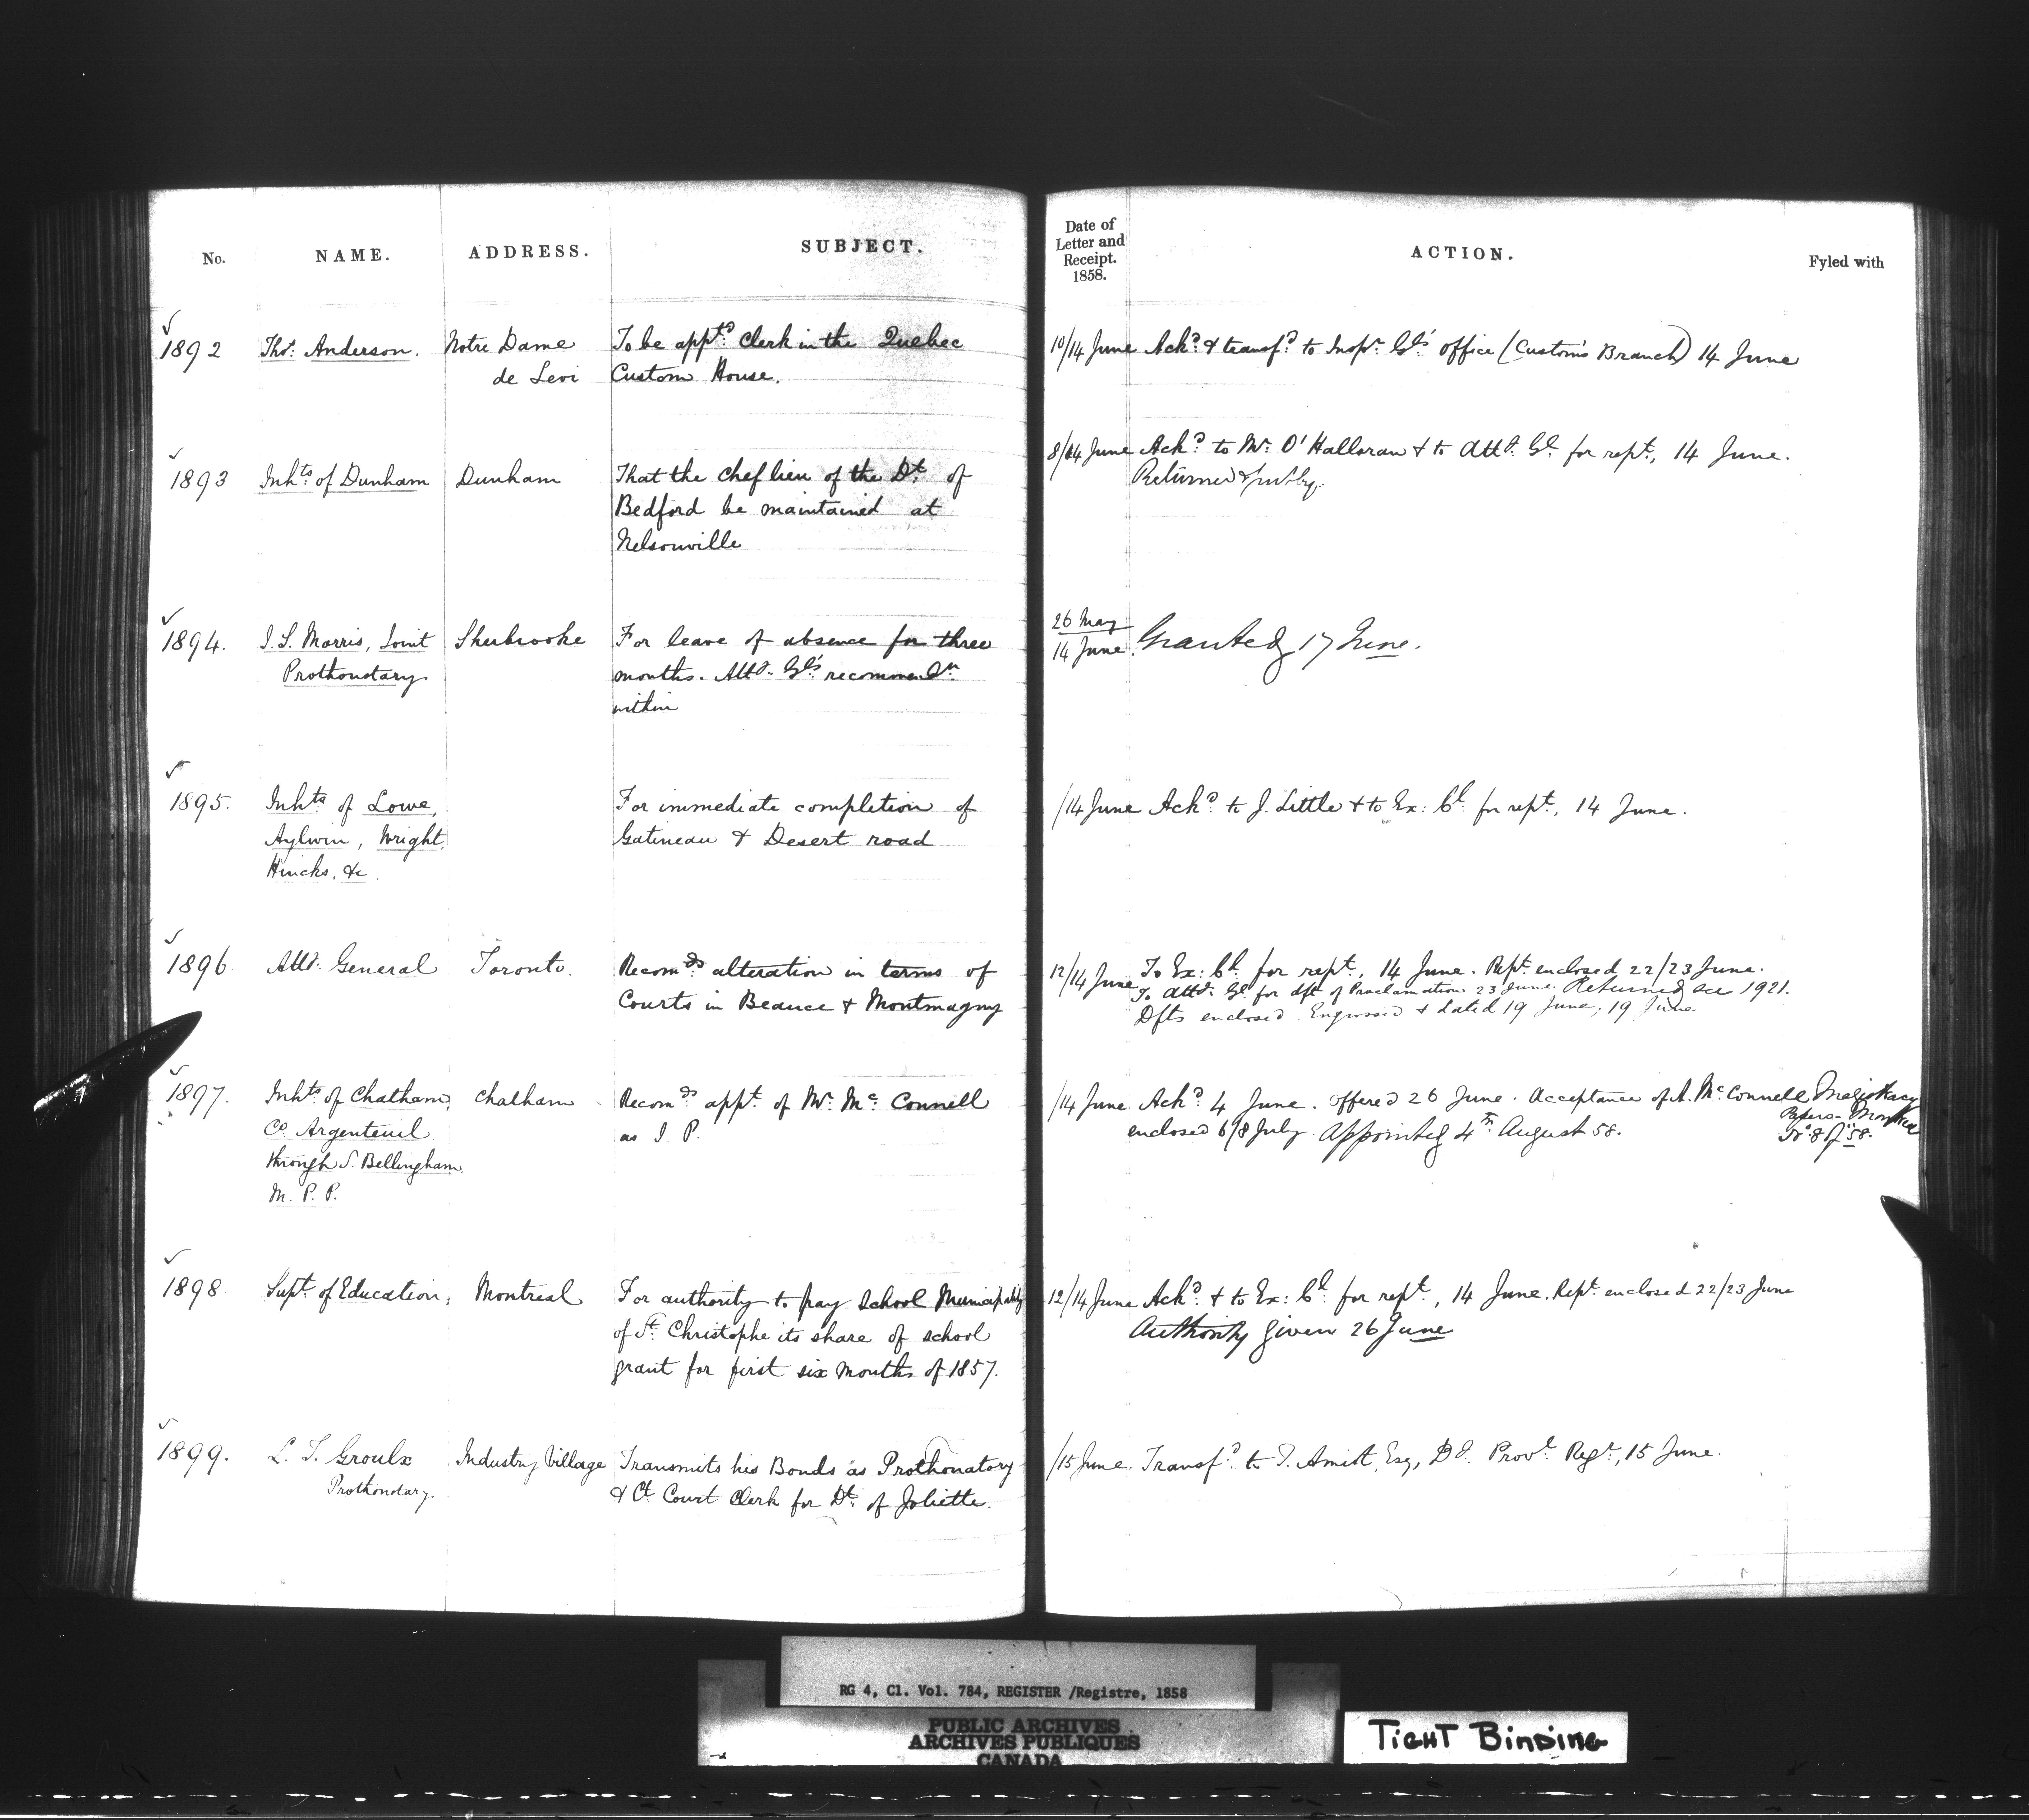 No. NAME. ADDRESS. SUBJECT. Date of Letter and Receipt. 1858. ACTION. Fyled with
1892 Thos. Anderson. Notre Dame To be apptd. Clerk in the Quebec 10/14 June Ackd. & transfd. to Inspr. Gl's office (Customs Branch) 14 June
de Levi Custom House.
1893 Inhts of Dunham Dunham That the chef lieu of the Dt. of 8/14 June Ackd. to Mr. O'Halloran & to Atty. Gl. for rept., 14 June.
Bedford be maintained at Returned
Nelsonville
1894. Morris, Joint Sherbrooke For leave of absence for three 26 May
14 June. Granted 17 June.
Prothonotary. months. Atty. Gl's recommendn.
within
1895. Inhts of Lowe, For immediate completion of /14 June Ackd. to J. Little & to Ex: Cl. for rept., 14 June.
Aylwin, Wright, Gatineau & Desert road
Hincks, &c.
1896. Atty. General Toronto. Recomds. alteration in terms of 12/14 June To Ex: Cl. for rept., 14 June. Rept. enclosed 22/23 June.
Courts in Beauce & Montmagny To Atty. Gl. for dft. of Proclamation 23 June. Returned see 1921.
Dfts enclosed. Engrossed & dated 19 June, 19 June
1897. Inhts. of Chatham, Chatham Recomds. appt. of Mr. McConnell /14 June Ackd. 4 June. Offered 26 June. Acceptance of A. McConnell Magistracy
Co. Argenteuil as J. P. enclosed 6/8 July. Appointed 4th. August 58. Papers - Montreal
through S. Bellingham 58.
M. P. P.
1898. Supt. of Education, Montreal For authority to pay School Municipality 12/14 June Ackd. & to Ex: Cl. for rept., 14 June. Rept. enclosed 22/23 June
of St. Christophe its share of school Authority given 26 June
grant for first six months of 1857.
1899. L. T. Groulx Industry Village Transmits his Bonds as Prothonotary /15 June. Transfd. to T. Amiot, Esq, Dy. Provl. Regr., 15 June.
Prothonotary. & Ct. Court Clerk for Dt. of Joliette.
RG 4, C1. Vol. 784, REGISTER /Registre, 1858
PUBLIC ARCHIVES
ARCHIVES PUBLIQUES
CANADA
TIGHT BINDING